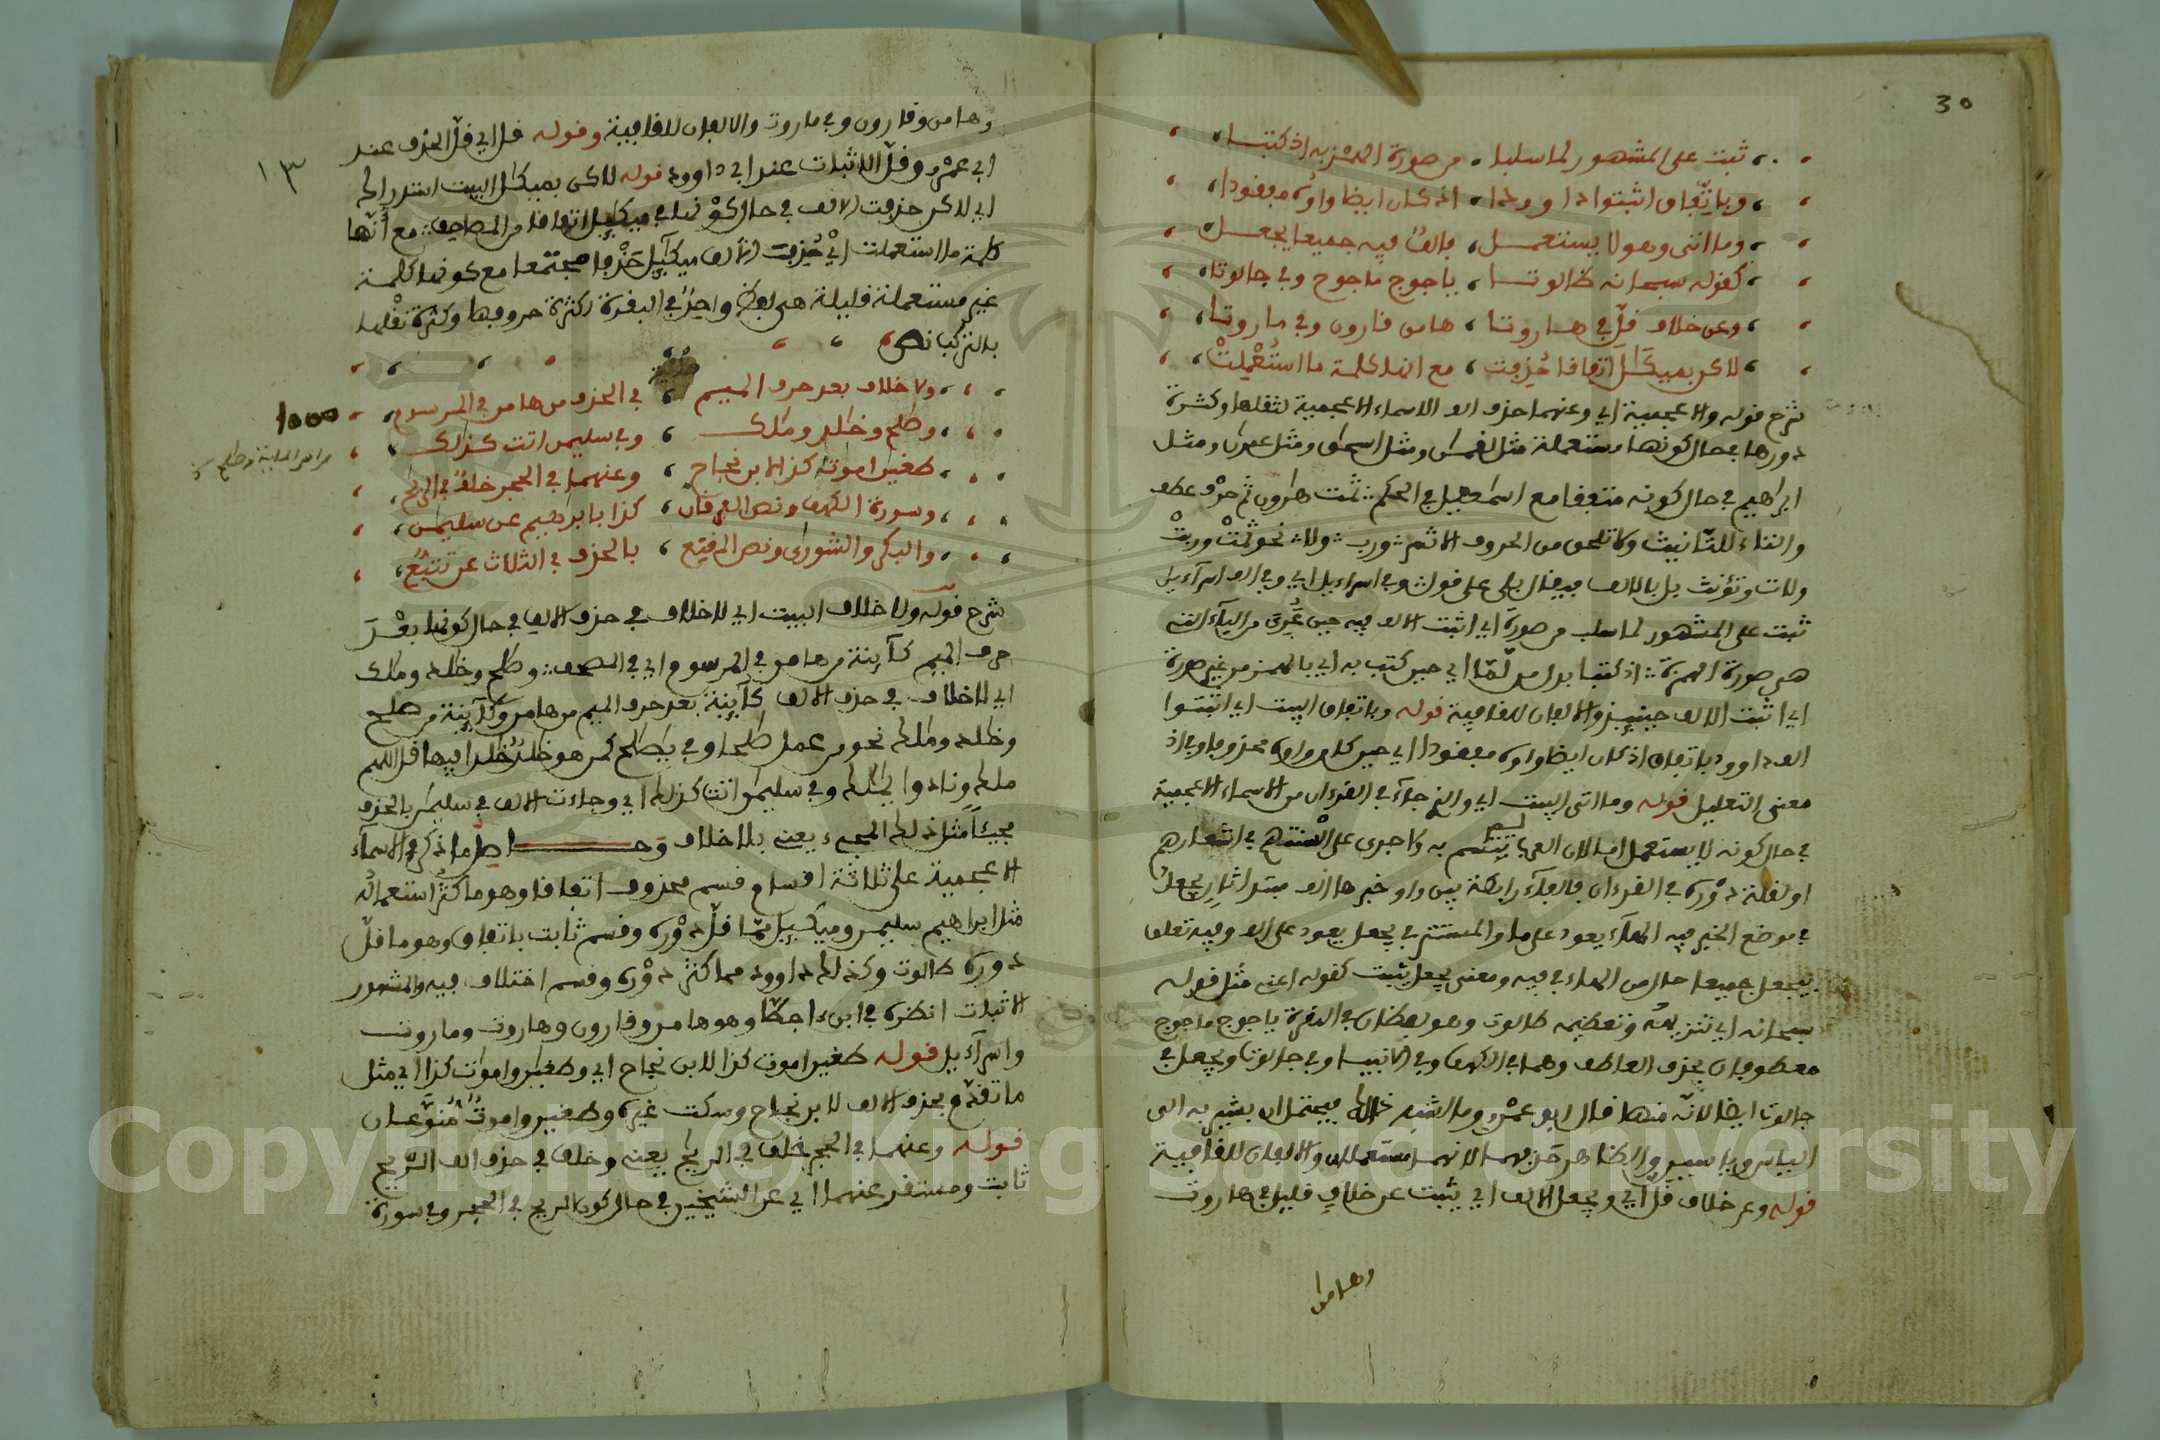 30
ثبت على المشهور لما سلبا من صورة الهمز به اذ كتبا
وباتفاق اثبتوا داوودا اذ كان ايضا واوه مفقودا
وما اتى وهو لا يستعمل فالف فيه جميعا يجعل
كقوله سبحانه طالوتا ياجوج ماجوج وفي جالوتا
وعن خلاف قل في هاروتا هامان قارون وفي ماروتا
لاكن بميكائل اتفاقا حذفت مع انها كلمة ما استعملت
شرح قوله والاعجمية اي وعنهما حذف الف الاسماء الاعجمية لثقلها وكثرة
دورها في حال كونها مستعملة مثل لقمان ومثل اسحاق ومثل عمران ومثل
ابراهيم في حال كونه متفقا مع اسماعيل في الحكم ثمت هارون ثم حرف عطف
والتاء للتانيث ولا تلحق من الحروف الا ثم ورب ولا نحو ثمت وربت
ولات وتؤنث بل بالالف فيقال بلى على قول وفي اسراءيل اي وفي الف اسراءيل
ثبت على المشهور لما سلب من صورة اي اثبت الالف فيه حين عرى من الياء التي
هي صورة الهمزة اذ كتبا بدل من لما اي حين كتب به اي بالهمز من غير صورة
اي اثبت الالف حينئذ والالفان للقافية قوله وباتفاق البيت اي اثبتوا
الف داوود باتفاق اذ كان ايضا واوه مفقودا اي حين كان واوه محذوفا وفي اذ
معنى التعليل قوله وما اتى البيت اي والذي جاء في القرءان من الاسماء الاعجمية
في حال كونه لا يستعمل به ولا جرى على السنتهم في اشعارهم
او لقلة دوره في القرءان فالفاء رابطة بين ما وخبرها الف مبتدا ثان يجعل
في موضع الخبر فيه الهاء يعود على ما والمستتر في يجعل يعود على الف وفيه تعلق
بيجعل جميعا حال من الهاء في فيه ومعنى يجعل يثبت كقوله اعني مثل قوله
سبحانه اي تنزيهه وتعظيمه طالوت وهو لفظان في البقرة ياجوج ماجوج
معطوفان بحذف العاطف وهما في الكهف وفي الانبيا وفي جالوتا ويجعل في
جالوت ايضا لانه منها قال ابو عمرو وما اشبه ذلك فيحتمل ان يشير به الى
الياس وياسين والظاهر حذفهما لانهما مستعملان والالفان للقافية
قوله وعن خلاف قل اي ويجعل الالف اي يثبت عن خلاف قليل في هاروت
وهامان
١٣
وهامان وقارون وفي ماروت والالفان للقافية وقوله قل اي قل الحذف عند
ابي عمرو وقل الاثبات عند ابي داوود قوله لاكن بميكائل البيت استدراك
اي لاكن حذفت الالف في حال كونها في ميكائيل اتفاقا من المصاحف مع انها
كلمة ما استعملت اي حذفت الالف ميكائيل حذفا مجتمعا مع كونها كلمة
غير مستعملة قليلة هي لفظ واحد في البقرة لكثرة حروفها وكثرة ثقلها
بالتركيب نص
ولا خلاف بعد حرف الميم في الحذف من هامان في المرسوم
وظلم وخلد وملك وفي سليمان اتت كذلك
طغيان اموات كذا لابن نجاح وعنهما في الحجر خلف في الرياح
وسورة الكهف ونص الفرقان كذا بابراهيم عن سليمان
والبكر والشورى ونص المقنع بالحذف في الثلاث عن تتبع
شرح قوله ولا خلاف البيت اي لا خلاف في حذف الالف في حال كونها بعد
حرف الميم كائنة من هامان في المرسوم اي في المصحف وظلم وخلد وملك
اي لا خلاف في حذف الالف كائنة بعد حرف الميم من هامان وكائنة من صلح
وخلد وملك نحو من عمل صلحا وفي يا صلح كمن هو خلد خلدا فيها قل اللهم
ملك ونادوا يملك وفي سليمان اتت كذلك اي وجاءت الالف في سليمان بالحذف
مجيئا مثل ذلك المجيء يعني بلا خلاف وحاصل ما ذكر في الاسماء
الاعجمية على ثلاثة اقسام قسم محذوف اتفاقا وهو ما كثر استعماله
مثل ابراهيم سليمان وميكائيل مما قل دوره وقسم ثابت باتفاق وهو ما قل
دوره طالوت وكذلك داوود مما كثر دوره وقسم اختلف فيه والمشهور
الاثبات انظره في ابن ءاجطا وهو هامان وقارون وهاروت وماروت
واسراءيل قوله طغيان اموات كذا لابن نجاح اي وطغيان واموات كذا اي مثل
ما تقدم بحذف الالف لابن نجاح وسكت غيره وطغيان واموات منوعان
قوله وعنهما في الحجر خلف في الرياح يعني وخلف في حذف الف الرياح
ثابت ومستقر عنهما اي عن الشيخين في حال كون الرياح في الحجر وفي سورة